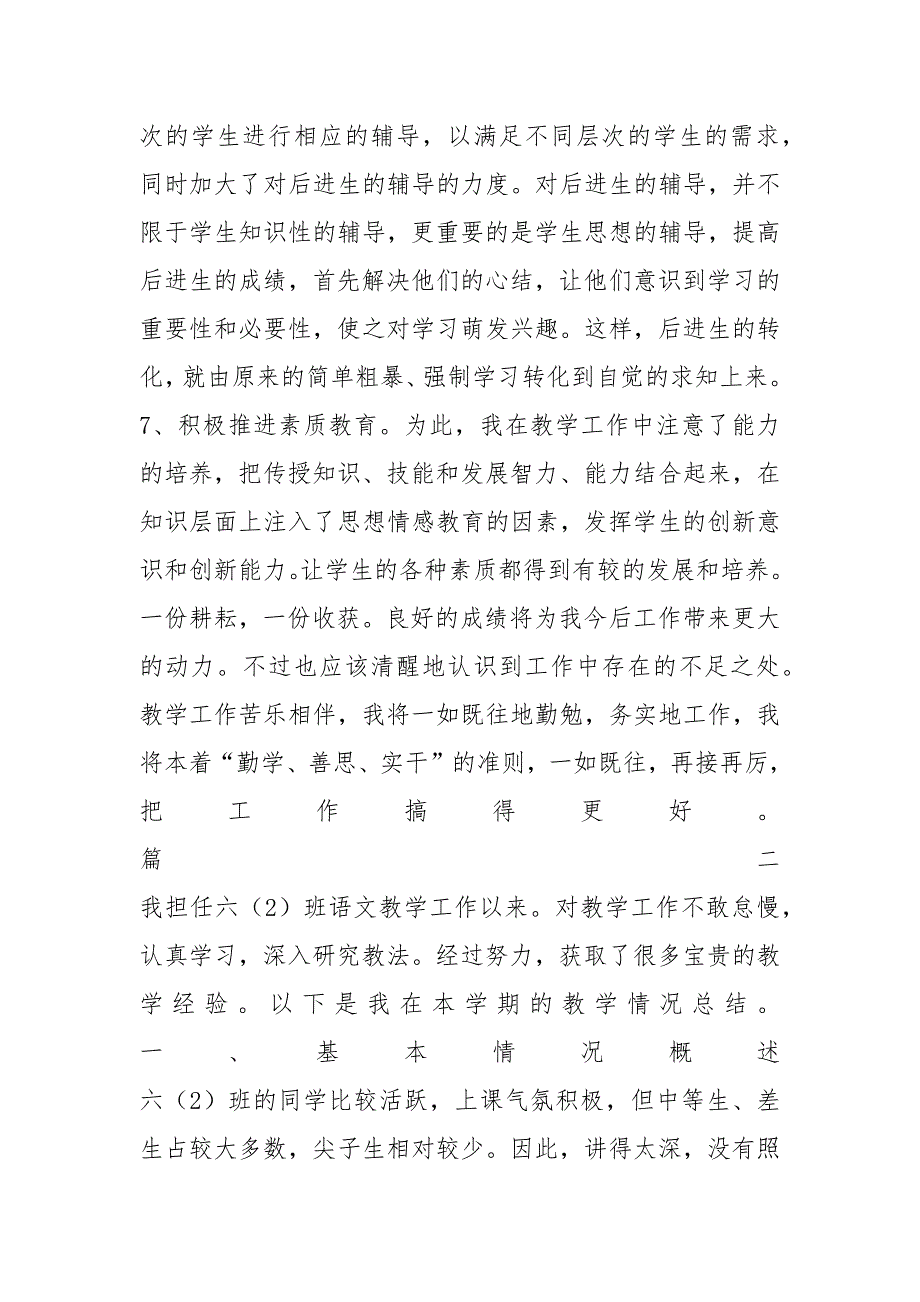 次的学生进行相应的辅导，以满足不同层次的学生的需求，
同时加大了对后进生的辅导的力度。对后进生的辅导，并不
限于学生知识性的辅导，更重要的是学生思想的辅导，提高
后进生的成绩，首先解决他们的心结，让他们意识到学习的
重要性和必要性，使之对学习萌发兴趣。这样，后进生的转
化，就由原来的简单粗暴、强制学习转化到自觉的求知上来。
7、积极推进素质教育。为此，我在教学工作中注意了能力
的培养，把传授知识、技能和发展智力、能力结合起来，在
知识层面上注入了思想情感教育的因素，发挥学生的创新意
识和创新能力。让学生的各种素质都得到有较的发展和培养。
一份耕耘，一份收获。良好的成绩将为我今后工作带来更大
的动力。不过也应该清醒地认识到工作中存在的不足之处。
教学工作苦乐相伴，我将一如既往地勤勉，务实地工作，我
将本着“勤学、善思、实干”的准则，一如既往，再接再厉，
把工作搞得更好。
篇二
我担任六（2）班语文教学工作以来。对教学工作不敢怠慢，
认真学习，深入研究教法。经过努力，获取了很多宝贵的教
学经验。以下是我在本学期的教学情况总结。
一、基本情况概述
六（2）班的同学比较活跃，上课气氛积极，但中等生、差
生占较大多数，尖子生相对较少。因此，讲得太深，没有照